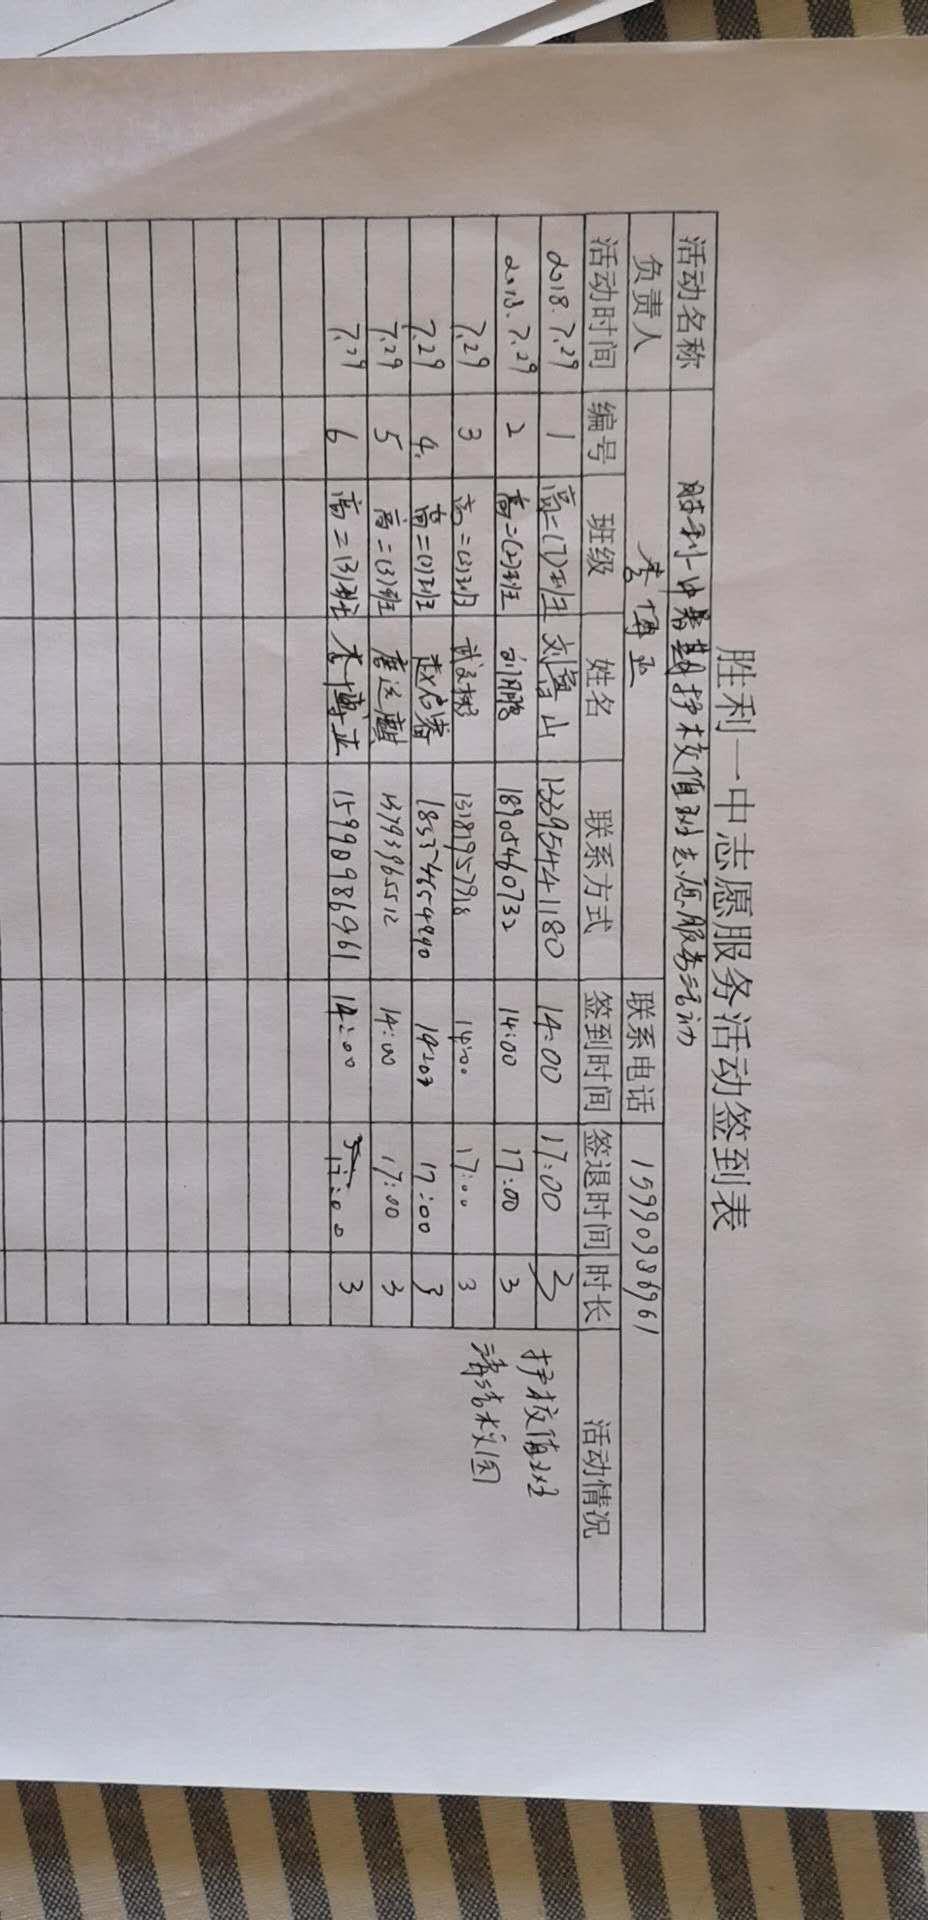 胜利一中志愿服务活动签到表
活动名称 胜利一中暑期护校值班志愿服务活动
负责人 李博正 联系电话 15990986961
活动时间 编号 班级 姓名 联系方式 签到时间 签退时间 时长 活动情况
2018.7.29 1 高二(7)班 刘鲁山 13395441180 14:00 17:00 3 护校值班
2018.7.29 2 高二(2)班 刘鹏 18905460732 14:00 17:00 3 清洁校园
7.29 3 高二(3)班 13181957918 14:00 17:00 3
7.29 4. 高二(1)班 赵启睿 14:00 17:00 3
7.29 5 高二(3)班 唐运麒 13793965512 14:00 17:00 3
7.29 6 高二(3)班 李博正 15990986961 14:00 17:00 3